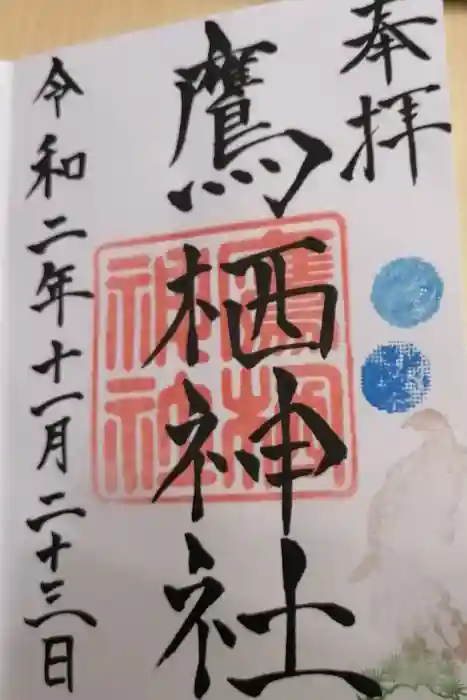 奉拝
鷹栖神社
令和二年十一月二十三日
鷹栖
神社